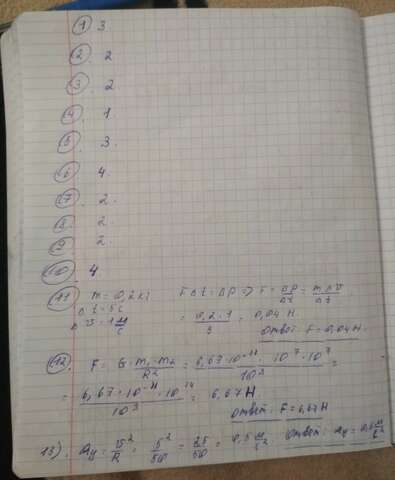 1 3
2. 2
3. 2
4. 1
5. 3
6. 4.
7. 2.
8. 2
9. 2
10. 4.
11 m = 0,2 кг FΔt = Δp => F = Δp/Δt = mΔv/Δt
Δt = 5 с
Δv = 1 м/с = 0,2·1/5 = 0,04 Н.
Ответ: F = 0,04 Н.
12. F = G·m₁·m₂/R² = 6,67·10⁻¹¹·10⁷·10⁷/10³ =
= 6,67·10⁻¹¹·10¹⁴/10³ = 6,67 Н
Ответ: F = 6,67 Н
13). aу = v²/R = 5²/50 = 25/50 = 0,5 м/с² Ответ: aу = 0,5 м/с²